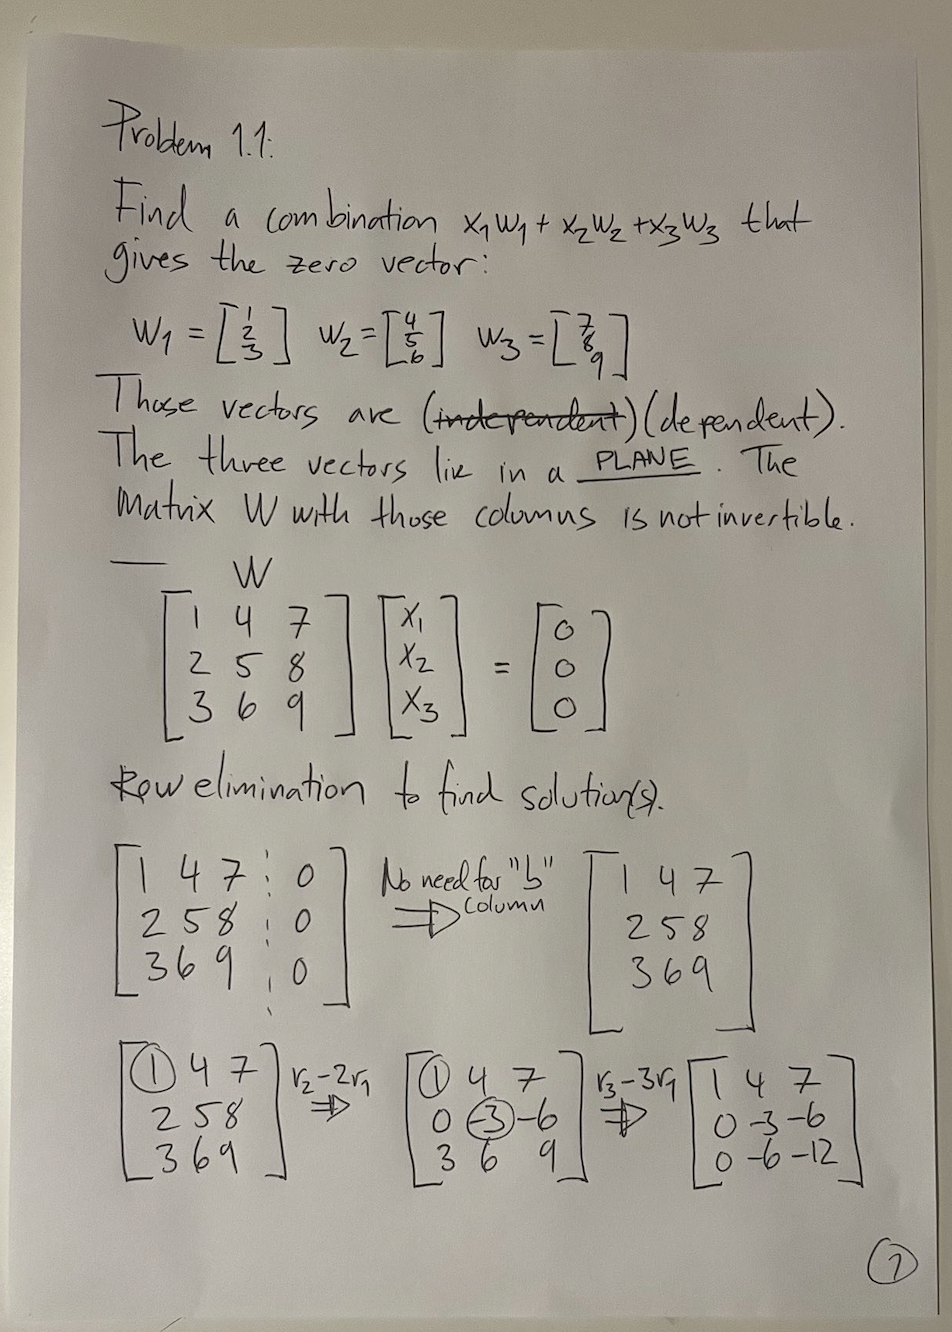 Problem 1.1:
Find a combination x₁w₁ + x₂w₂ + x₃w₃ that
gives the zero vector:
w₁ = [1 2 3] w₂ = [4 5 6] w₃ = [7 8 9]
Those vectors are (independent) (dependent).
The three vectors lie in a PLANE. The
Matrix W with those columns is not invertible.
W
[1 4 7] [x₁] [0]
[2 5 8] [x₂] = [0]
[3 6 9] [x₃] [0]
Row elimination to find solution(s).
[1 4 7 ¦ 0] No need for "b" [1 4 7]
[2 5 8 ¦ 0] ⇒ column [2 5 8]
[3 6 9 ¦ 0] [3 6 9]
[1 4 7] r₂-2r₁ [1 4 7] r₃-3r₁ [1 4 7]
[2 5 8] ⇒ [0 -3 -6] ⇒ [0 -3 -6]
[3 6 9] [3 6 9] [0 -6 -12]
1